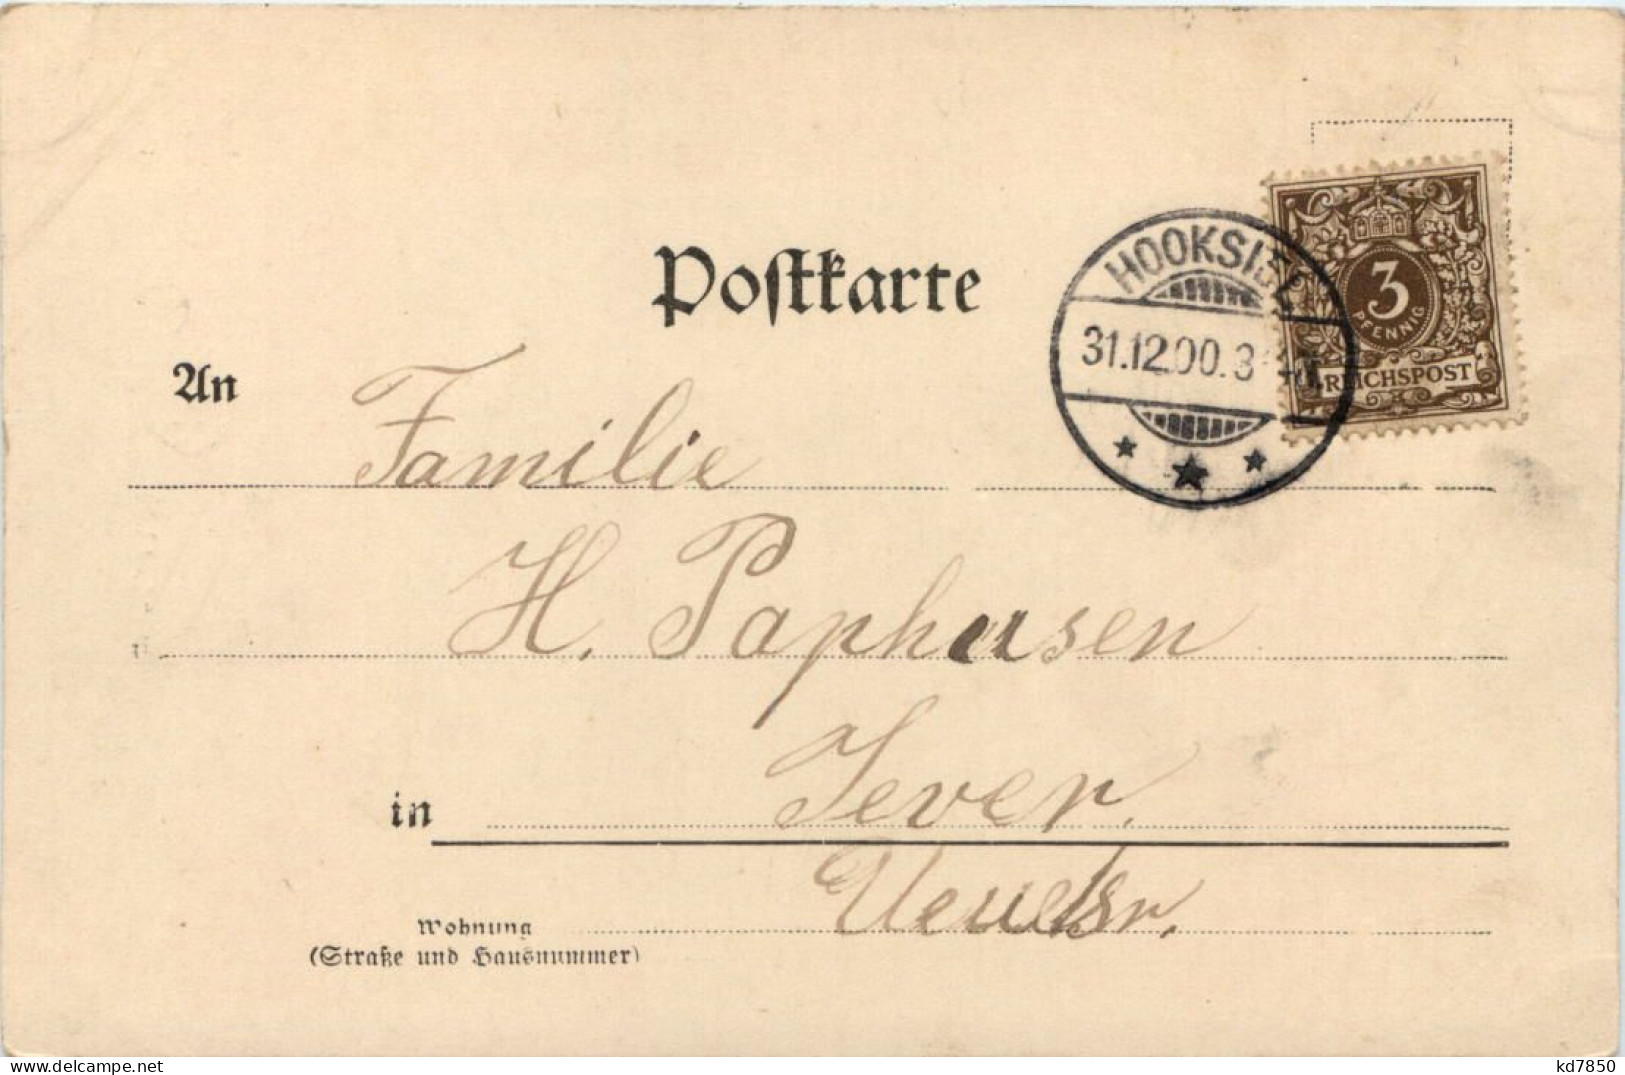 Postkarte
HOOKSIEL
31.12.00.3
3
PFENNIG
REICHSPOST
An
Familie
H. Paphusen
in
Jever.
Wohnung
(Straße und Hausnummer)
kd7850